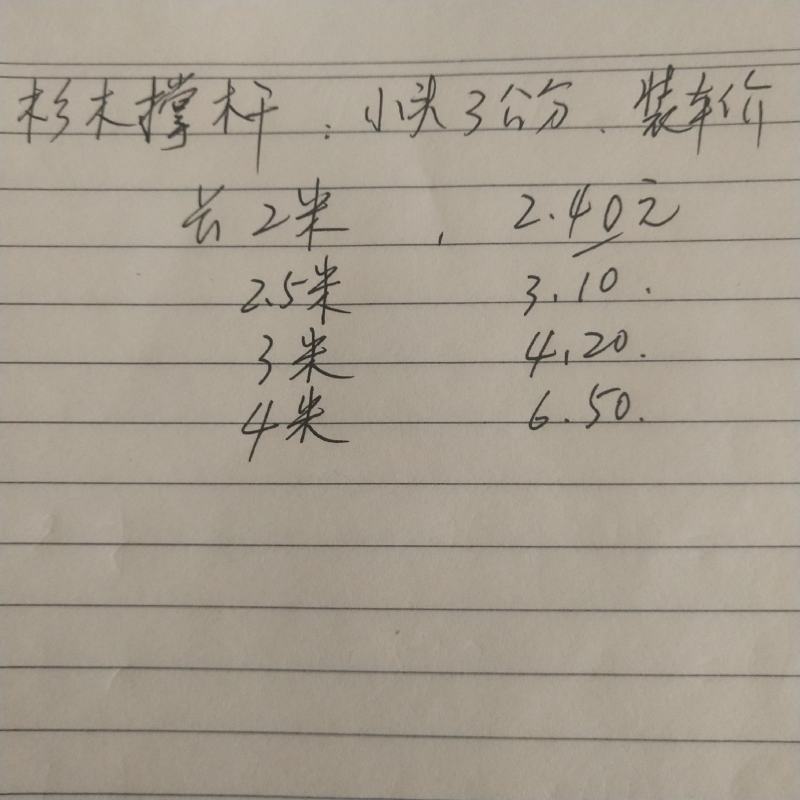 杉木撑杆：小头3公分、装车价
长2米，2.40元
2.5米 3.10.
3米 4.20.
4米 6.50.